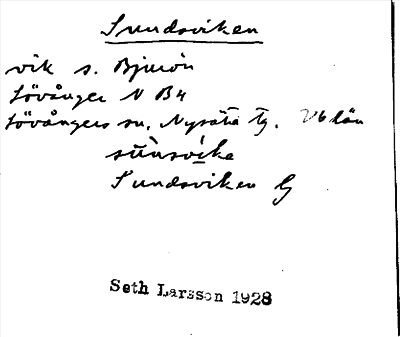 Sundsviken
vik s. Bjurön
Lövånger N B4
Lövångers sn. Nysätra tg. Vb län
Sundsviken G
Seth Larsson 1928